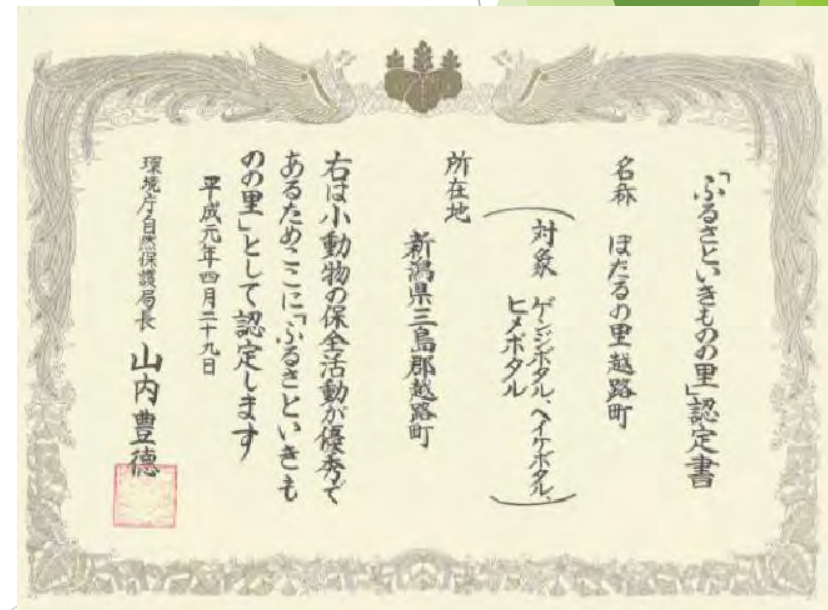 「ふるさといきものの里」認定書
名称　ほたるの里越路町
対象　ゲンジボタル、ヘイケボタル、
ヒメボタル
所在地
新潟県三島郡越路町
右は小動物の保全活動が優秀で
あるためここに「ふるさといきも
のの里」として認定します
平成元年四月二十九日
環境庁自然保護局長　山内豊徳